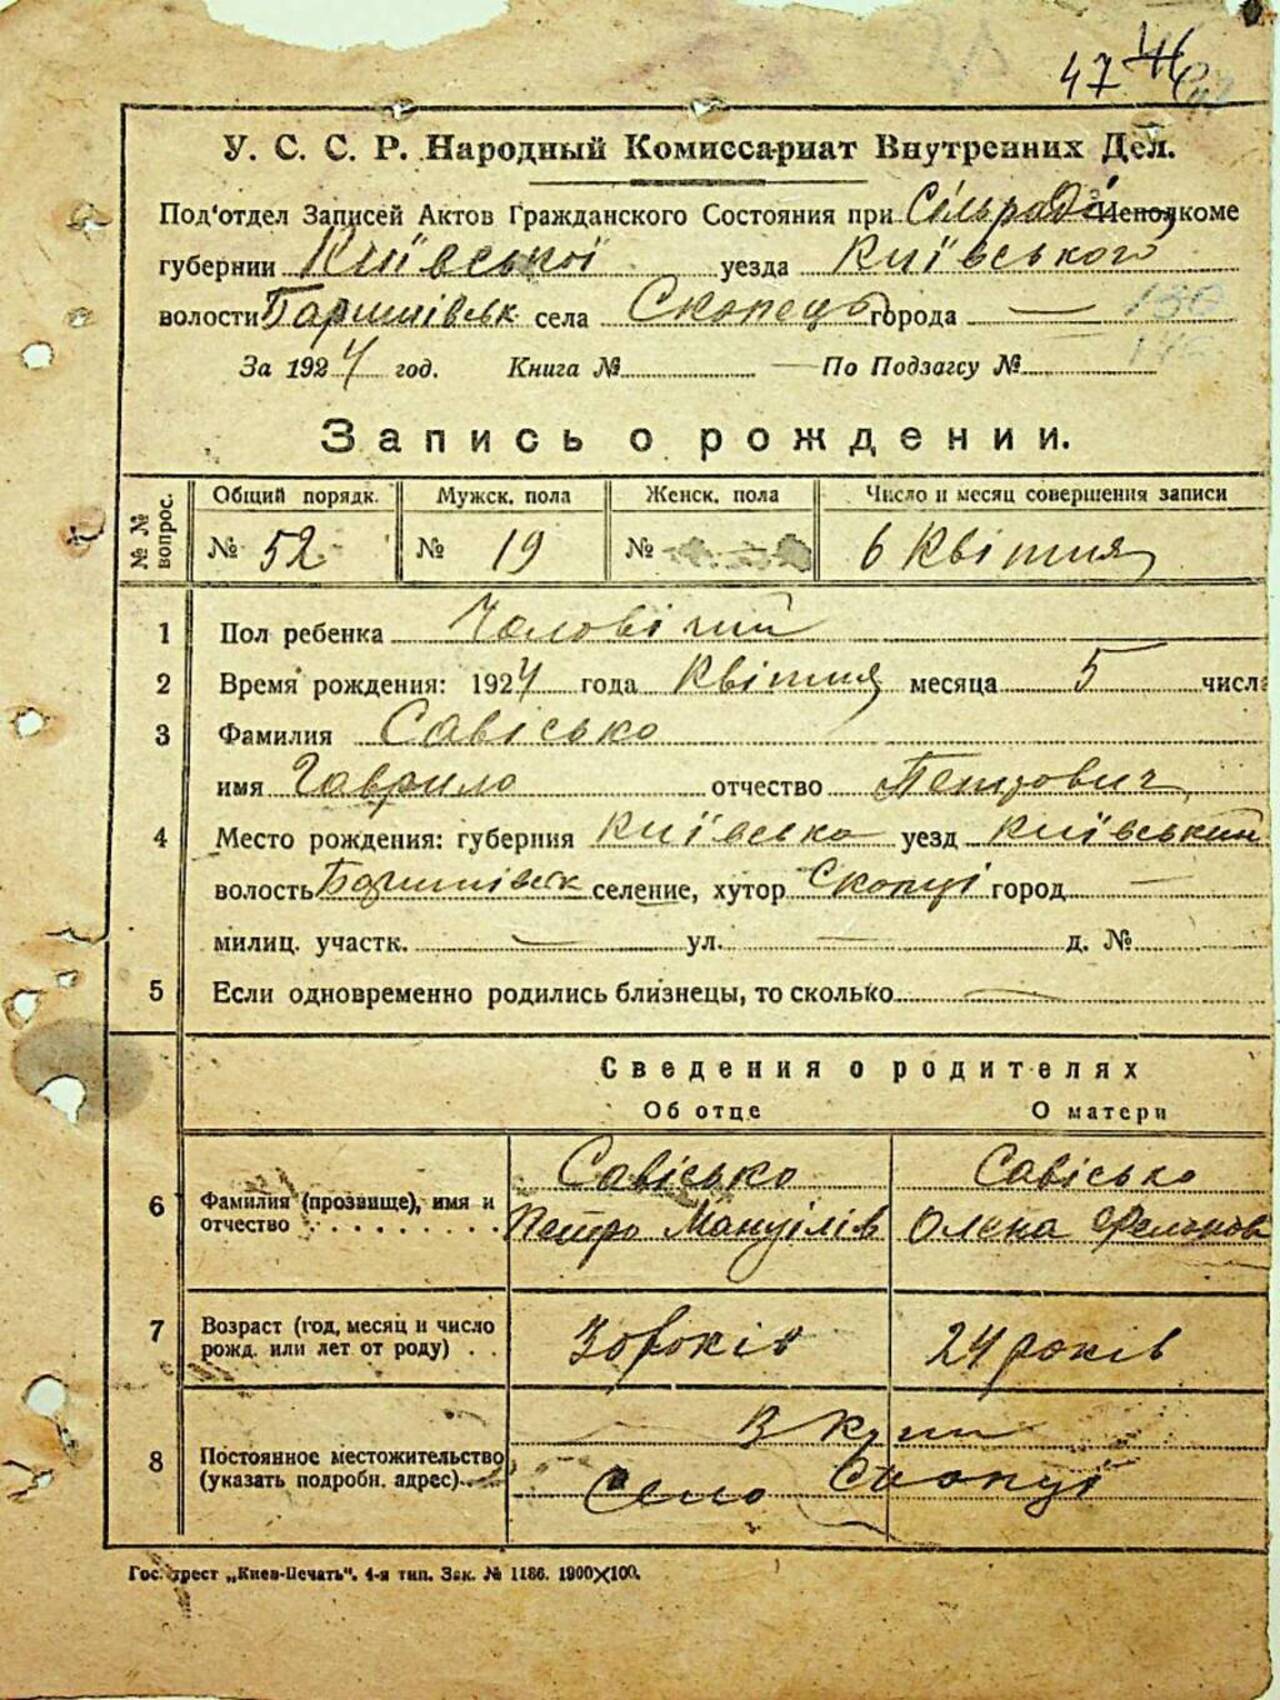 47 46
У. С. С. Р. Народный Комиссариат Внутренних Дел.
Под'отдел Записей Актов Гражданского Состояния при Сільраді Исполкоме
губернии Київської уезда Київського
волости Баришівськ села Скопець города — 130
За 1924 год. Книга № — По Подзагсу №
Запись о рождении.
№№ вопрос. Общий порядк. Мужск. пола Женск. пола Число и месяц совершения записи
№ 52 № 19 № 6 Квітня
1 Пол ребенка Чоловічий
2 Время рождения: 1924 года Квітня месяца 5 числа
3 Фамилия Савісько
имя Гаврило отчество Петрович
4 Место рождения: губерния Київська уезд Київський
волость Баришівськ селение, хутор Скопці город —
милиц. участк. — ул. — д. №
5 Если одновременно родились близнецы, то сколько —
Сведения о родителях
Об отце О матери
6 Фамилия (прозвище), имя и
отчество
Савісько Савісько
Петро Мануілів Олена
7 Возраст (год, месяц и число
рожд. или лет от роду)
30 років 24 років
8 Постоянное местожительство
(указать подробн. адрес)
Вкупі
Село Скопці
Гос. трест „Киев-Печать". 4-я тип. Зак. № 1186. 1900×100.